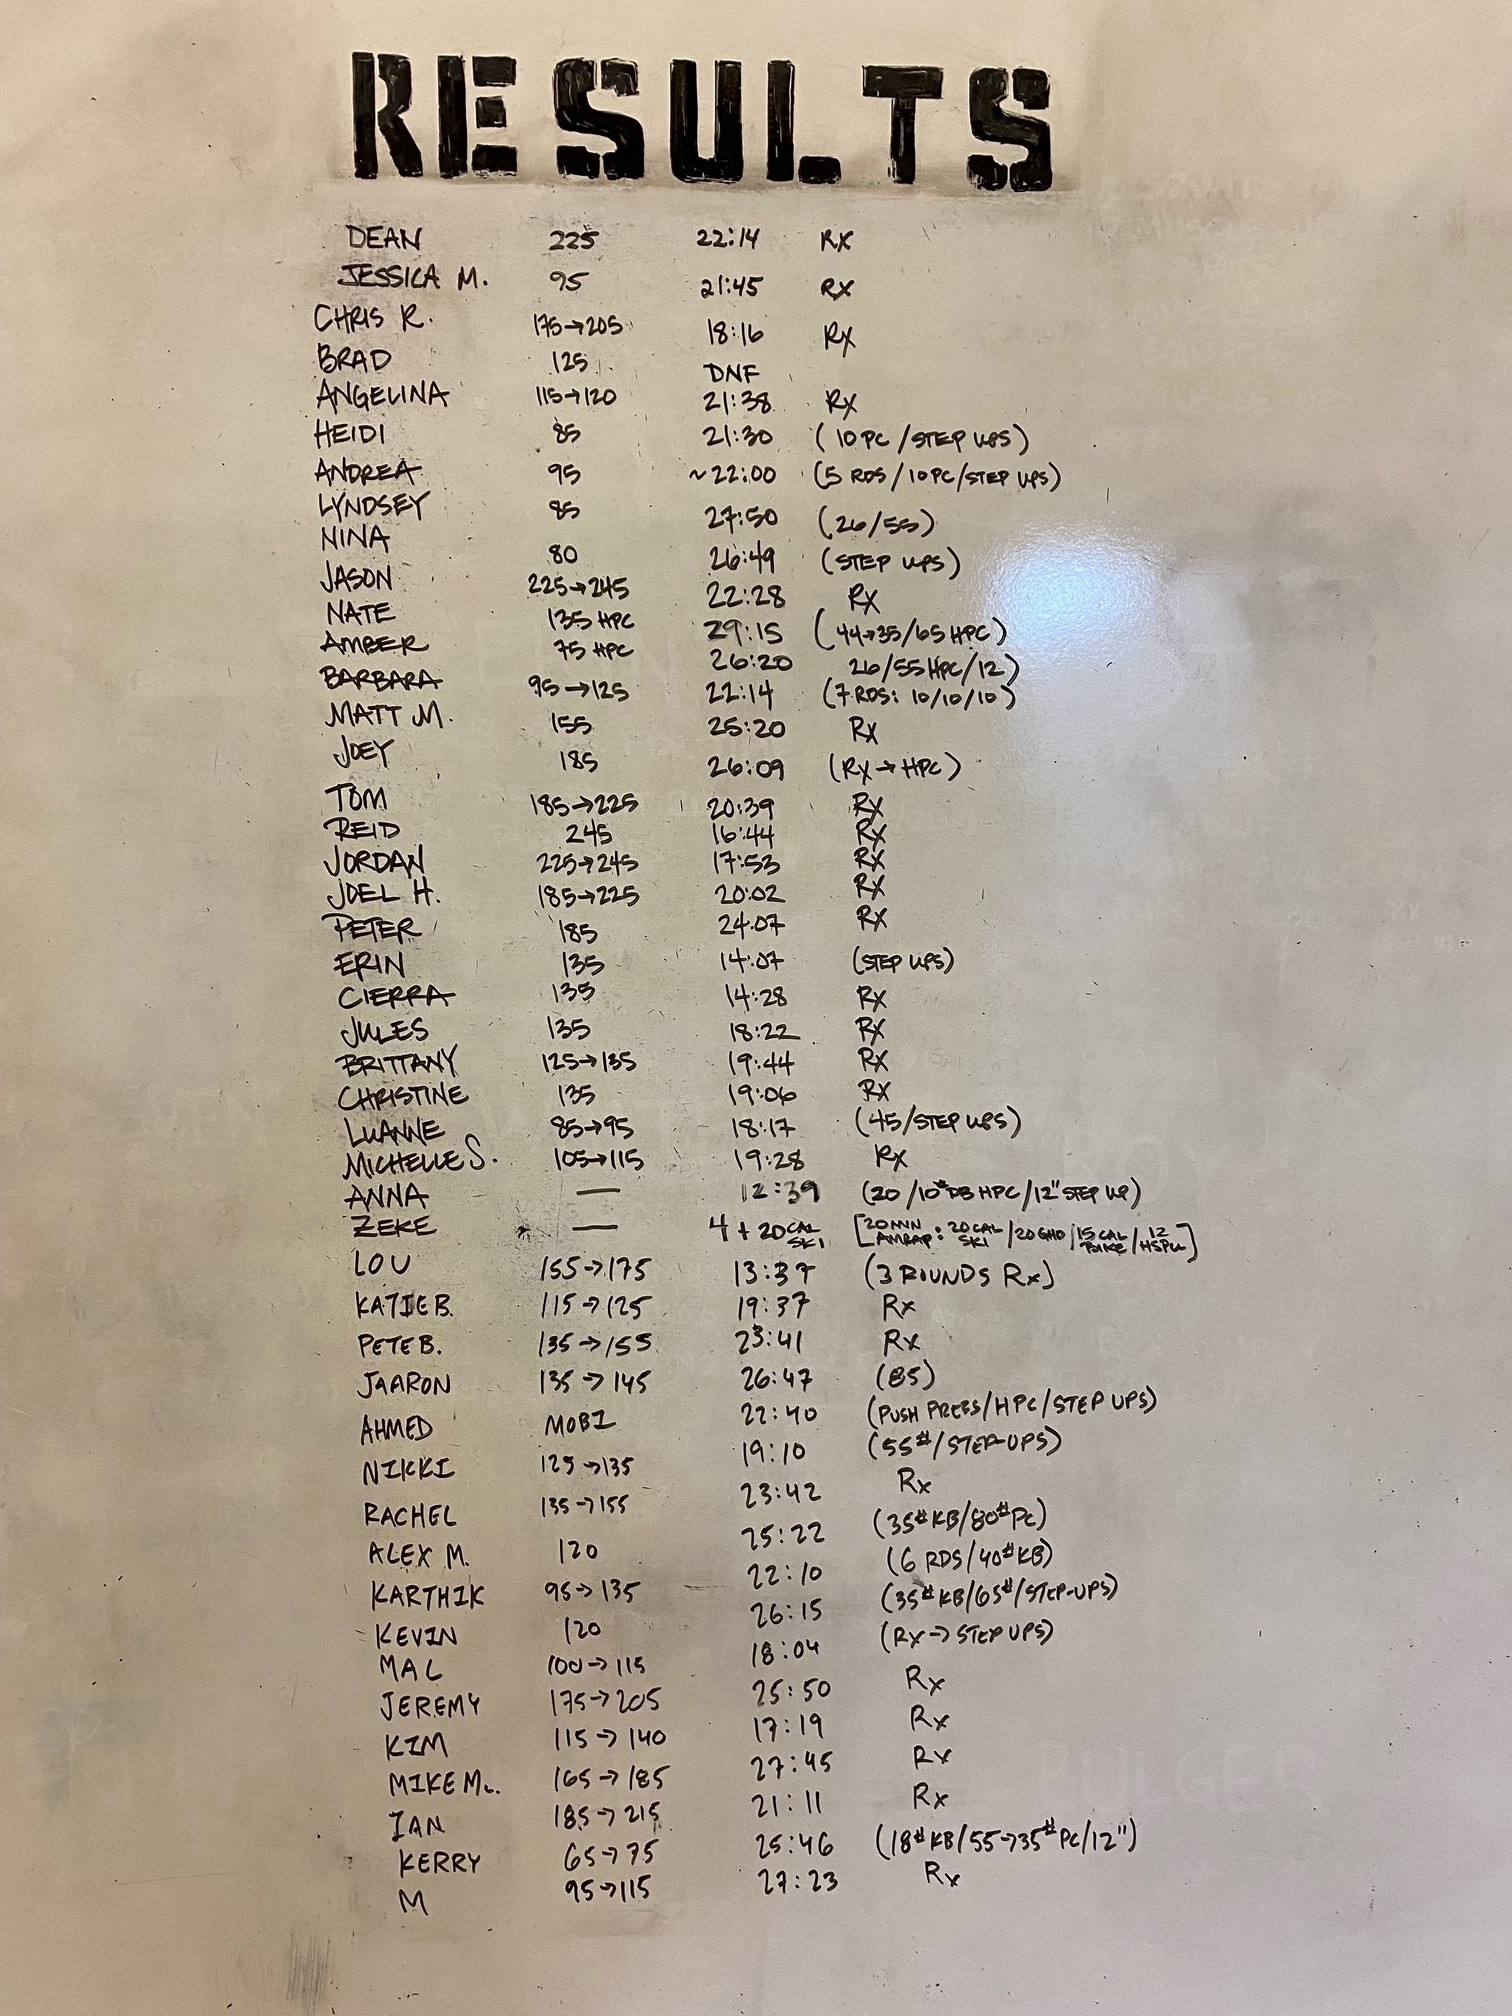 RESULTS
DEAN 225 22:14 RX
JESSICA M. 95 21:45 RX
CHRIS R. 175→205 18:16 RX
BRAD 125 DNF
ANGELINA 115→120 21:38 RX
HEIDI 85 21:30 (10 PC/STEP UPS)
ANDREA 95 ~22:00 (5 RDS/10PC/STEP UPS)
LYNDSEY 85 27:50 (26/55)
NINA 80 26:49 (STEP UPS)
JASON 225→245 22:28 RX
NATE 135 HPC 29:15 (44→35/65 HPC)
AMBER 75 HPC 26:20 26/55 HPC/12)
BARBARA 95→125 22:14 (7 RDS: 10/10/10)
MATT M. 155 25:20 RX
JOEY 185 26:09 (RX→HPC)
TOM 185→225 20:39 RX
REID 245 16:44 RX
JORDAN 225→245 17:53 RX
JOEL H. 185→225 20:02 RX
PETER 185 24:07 RX
ERIN 135 14:07 (STEP UPS)
CIERRA 135 14:28 RX
JULES 135 18:22 RX
BRITTANY 125→135 19:44 RX
CHRISTINE 135 19:06 RX
LUANNE 85→95 18:17 (45/STEP UPS)
MICHELLE S. 105→115 19:28 RX
ANNA — 12:39 (20/10# DB HPC/12" STEP UP)
ZEKE — 4 + 20 CAL SKI [20 MIN AMRAP: 20 CAL SKI/20 GHD/15 CAL BIKE/12 HSPU]
LOU 155→175 13:37 (3 ROUNDS Rx)
KATIE B. 115→125 19:37 Rx
PETE B. 135→155 23:41 Rx
JAARON 135→145 26:47 (85)
AHMED MOBI 22:40 (PUSH PRESS/HPC/STEP UPS)
NIKKI 125→135 19:10 (55#/STEP-UPS)
RACHEL 135→155 23:42 Rx
ALEX M. 120 25:22 (35# KB/80# PC)
KARTHIK 95→135 22:10 (6 RDS/40# KB)
KEVIN 120 26:15 (35# KB/65#/STEP-UPS)
MAL 100→115 18:04 (RX→STEP UPS)
JEREMY 175→205 25:50 Rx
KIM 115→140 17:19 Rx
MIKE Mc. 165→185 27:45 Rx
IAN 185→215 21:11 Rx
KERRY 65→75 25:46 (18# KB/55→35# PC/12")
M 95→115 27:23 Rx